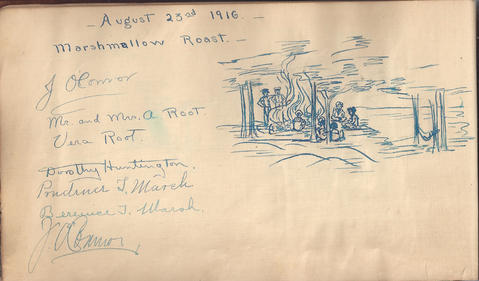 - August 23rd 1916. -
Marshmallow Roast. -
J O'Connor
Mr. and Mrs. A Root.
Vera Root.
Dorothy Huntington.
Prudence T. March
Berenice T. Marsh.
J.